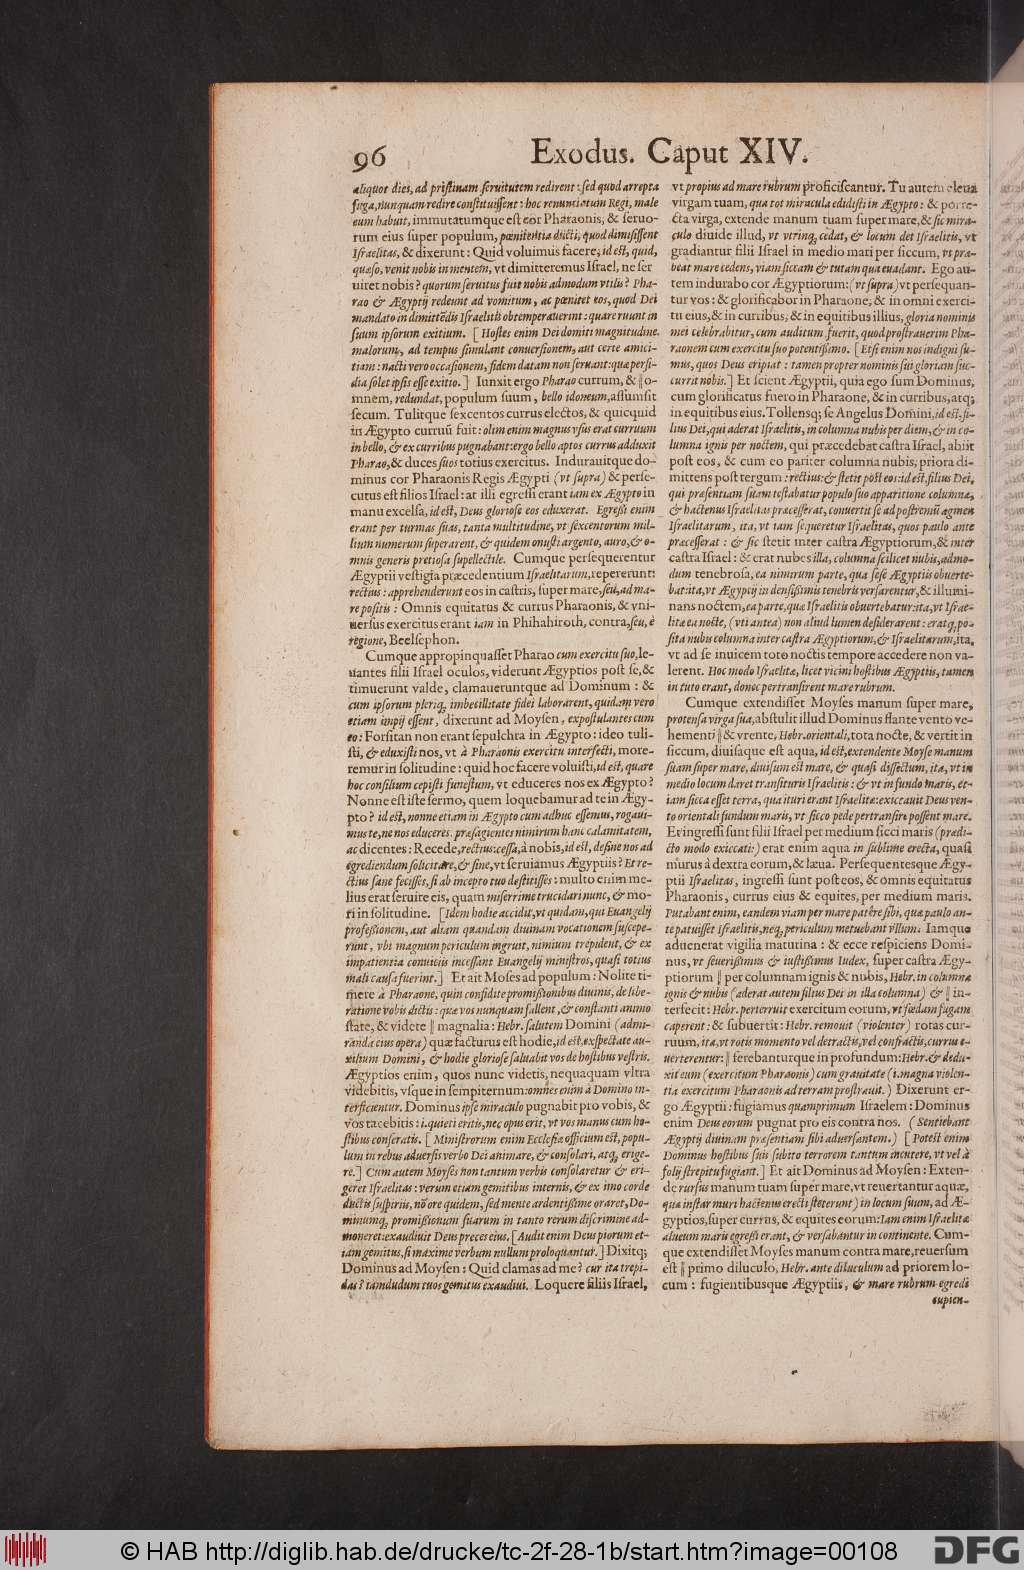 96
Exodus. Caput XIV.
aliquot diei, ad pristinam seruitutem redirent: sed quod arrepta
fuga, nunquam redire constituissent: hoc renuntiatum Regi, male
eum habuit, immutatumque est cor Pharaonis, & seruo-
rum eius super populum, pœnitentia ducti, quod dimisissent
Israelitas, & dixerunt: Quid voluimus facere, id est, quid,
quæso, venit nobis in mentem, vt dimitteremus Israel, ne ser
uiret nobis? quorum seruitus fuit nobis admodum vtilis? Pha-
rao & Ægyptij redeunt ad vomitum, ac pœnitet eos, quod Dei
mandato in dimittēdis Israelitis obtemperauerint: quare ruunt in
suum ipsorum exitium. [Hostes enim Dei domiti magnitudine
malorum, ad tempus simulant conuersionem, aut certe amici-
tiam: nacti vero occasionem, fidem datam non seruant: quæ perfi-
dia solet ipsis esse exitio.] Iunxit ergo Pharao currum, & ‖ o-
mnem, redundat, populum suum, bello idoneum, assumsit
secum. Tulitque sexcentos currus electos, & quicquid
in Ægypto curruū fuit: olim enim magnus vsus erat curruum
in bello, & ex curribus pugnabant: ergo bello aptos currus adduxit
Pharao, & duces suos totius exercitus. Indurauitque do-
minus cor Pharaonis Regis Ægypti (vt supra) & perse-
cutus est filios Israel: at illi egressi erant iam ex Ægypto in
manu excelsa, id est, Deus gloriose eos eduxerat. Egressi enim
erant per turmas suas, tanta multitudine, vt sexcentorum mil-
lium numerum superarent, & quidem onusti argento, auro, & o-
mnis generis pretiosa supellectile. Cumque persequerentur
Ægyptii vestigia præcedentium Israelitarum, repererunt:
rectius: apprehenderunt eos in castris, super mare, seu, ad ma-
re positis: Omnis equitatus & currus Pharaonis, & vni-
uersus exercitus erant iam in Phihahiroth, contra, seu, è
regione, Beelsephon.
Cumque appropinquasset Pharao cum exercitu suo, le-
uantes filii Israel oculos, viderunt Ægyptios post se, &
timuerunt valde, clamaueruntque ad Dominum: &
cum ipsorum pleriq; imbecillitate fidei laborarent, quidam vero
etiam impij essent, dixerunt ad Moysen, expostulantes cum
eo: Forsitan non erant sepulchra in Ægypto: ideo tuli-
sti, & eduxisti nos, vt à Pharaonis exercitu interfecti, more-
remur in solitudine: quid hoc facere voluisti, id est, quare
hoc consilium cepisti funestum, vt educeres nos ex Ægypto?
Nonne est iste sermo, quem loquebamur ad te in Ægy-
pto? id est, nonne etiam in Ægypto cum adhuc essemus, rogaui-
mus te, ne nos educeres. præsagientes nimirum hanc calamitatem,
ac dicentes: Recede, rectius: cessa, à nobis, id est, desine nos ad
egrediendum solicitare, & sine, vt seruiamus Ægyptiis? Et re-
ctius sane fecisses, si ab incepto tuo destitisses: multo enim me-
lius erat seruire eis, quam miserrime trucidari nunc, & mo-
ri in solitudine. [Idem hodie accidit, vt quidam, qui Euangelij
professionem, aut aliam quandam diuinam vocationem suscepe-
runt, vbi magnum periculum ingruit, nimium trepident, & ex
impatientia conuitiis incessant Euangelij ministros, quasi totius
mali causa fuerint.] Et ait Moses ad populum: Nolite ti-
mere à Pharaone, quin confidite promissionibus diuinis, de libe-
ratione vobis dictis: quæ vos nunquam fallent, & constanti animo
state, & videte ‖ magnalia: Hebr. salutem Domini (admi-
randa eius opera) quæ facturus est hodie, id est, exspectate au-
xilium Domini, & hodie gloriose saluabit vos de hostibus vestris.
Ægyptios enim, quos nunc videtis, nequaquam vltra
videbitis, vsque in sempiternum: omnes enim à Domino in-
terficientur. Dominus ipse miraculo pugnabit pro vobis, &
vos tacebitis: i. quieti eritis, nec opus erit, vt vos manus cum ho-
stibus conseratis. [Ministrorum enim Ecclesiæ officium est, popu-
lum in rebus aduersis verbo Dei animare, & consolari, atq; erige-
re.] Cum autem Moyses non tantum verbis consolaretur & eri-
geret Israelitas: verum etiam gemitibus internis, & ex imo corde
ductis suspiriis, nō ore quidem, sed mente ardentissime oraret, Do-
minumq; promissionum suarum in tanto rerum discrimine ad-
moneret: exaudiuit Deus preces eius. [Audit enim Deus piorum et-
iam gemitus, si maxime verbum nullum proloquantur.] Dixitq;
Dominus ad Moysen: Quid clamas ad me? cur ita trepi-
das? iamdudum tuos gemitus exaudiui. Loquere filiis Israel,
vt propius ad mare rubrum proficiscantur. Tu autem eleua
virgam tuam, qua tot miracula edidisti in Ægypto: & porre-
cta virga, extende manum tuam super mare, & sic mira-
culo diuide illud, vt vtrinq; cedat, & locum det Israelitis, vt
gradiantur filii Israel in medio mari per siccum, vt præ-
beat mare cedens, viam siccam & tutam qua euadant. Ego au-
tem indurabo cor Ægyptiorum: (vt supra) vt persequan-
tur vos: & glorificabor in Pharaone, & in omni exerci-
tu eius, & in curribus, & in equitibus illius, gloria nominis
mei celebrabitur, cum auditum fuerit, quod prostrauerim Pha-
raonem cum exercitu suo potentissimo. [Etsi enim nos indigni su-
mus, quos Deus eripiat: tamen propter nominis sui gloriam suc-
currit nobis.] Et scient Ægyptii, quia ego sum Dominus,
cum glorificatus fuero in Pharaone, & in curribus, atq;
in equitibus eius. Tollensq; se Angelus Domini, id est, fi-
lius Dei, qui aderat Israelitis, in columna nubis per diem, & in co-
lumna ignis per noctem, qui præcedebat castra Israel, abiit
post eos, & cum eo pariter columna nubis, priora di-
mittens post tergum: rectius: & stetit post eos: id est, filius Dei,
qui præsentiam suam testabatur populo suo apparitione columnæ,
& hactenus Israelitas præcesserat, conuertit se ad postremū agmen
Israelitarum, ita, vt iam sequeretur Israelitas, quos paulo ante
præcesserat: & sic stetit inter castra Ægyptiorum, & inter
castra Israel: & erat nubes illa, columna scilicet nubis, admo-
dum tenebrosa, ea nimirum parte, qua sese Ægyptiis obuerte-
bat: ita, vt Ægyptij in densissimis tenebris versarentur, & illumi-
nans noctem, ea parte, qua Israelitis obuertebatur: ita, vt Israe-
litæ ea nocte, (vti antea) non aliud lumen desiderarent: eratq; po-
sita nubis columna inter castra Ægyptiorum, & Israelitarum, ita,
vt ad se inuicem toto noctis tempore accedere non va-
lerent. Hoc modo Israelitæ, licet vicini hostibus Ægyptiis, tamen
in tuto erant, donec pertransirent mare rubrum.
Cumque extendisset Moyses manum super mare,
protensa virga sua, abstulit illud Dominus flante vento ve-
hementi ‖ & vrente, Hebr. orientali, tota nocte, & vertit in
siccum, diuisaque est aqua, id est, extendente Moyse manum
suam super mare, diuisum est mare, & quasi dissectum, ita, vt in
medio locum daret transituris Israelitis: & vt in fundo maris, et-
iam sicca esset terra, qua ituri erant Israelitæ: exiccauit Deus ven-
to orientali fundum maris, vt sicco pede pertransire possent mare.
Et ingressi sunt filii Israel per medium sicci maris (prædi-
cto modo exiccati:) erat enim aqua in sublime erecta, quasi
murus à dextra eorum, & læua. Persequentesque Ægy-
ptii Israelitas, ingressi sunt post eos, & omnis equitatus
Pharaonis, currus eius & equites, per medium maris.
Putabant enim, eandem viam per mare patēre sibi, quæ paulo an-
te patuisset Israelitis, neq; periculum metuebant vllum. Iamque
aduenerat vigilia matutina: & ecce respiciens Domi-
nus, vt seuerissimus & iustissimus Iudex, super castra Ægy-
ptiorum ‖ per columnam ignis & nubis, Hebr. in columna
ignis & nubis (aderat autem filius Dei in illa columna) & ‖ in-
terfecit: Hebr. perterruit exercitum eorum, vt fœdam fugam
caperent: & subuertit: Hebr. remouit (violenter) rotas cur-
ruum, ita, vt rotis momento vel detractis, vel confractis, currus e-
uerterentur: ‖ ferebanturque in profundum: Hebr. & dedu-
xit eum (exercitum Pharaonis) cum grauitate (i. magna violen-
tia exercitum Pharaonis ad terram prostrauit.) Dixerunt er-
go Ægyptii: fugiamus quamprimum Israelem: Dominus
enim Deus eorum pugnat pro eis contra nos. (Sentiebant
Ægyptij diuinam præsentiam sibi aduersantem.) [Potest enim
Dominus hostibus suis subito terrorem tantum incutere, vt vel à
folij strepitu fugiant.] Et ait Dominus ad Moysen: Exten-
de rursus manum tuam super mare, vt reuertantur aquæ,
quæ instar muri hactenus erecti steterunt) in locum suum, ad Æ-
gyptios, super currus, & equites eorum: Iam enim Israelitæ
alueum maris egressi erant, & versabantur in continente. Cum-
que extendisset Moyses manum contra mare, reuersum
est ‖ primo diluculo, Hebr. ante diluculum ad priorem lo-
cum: fugientibusque Ægyptiis, & mare rubrum egredi
cupien-
© HAB http://diglib.hab.de/drucke/tc-2f-28-1b/start.htm?image=00108
DFG